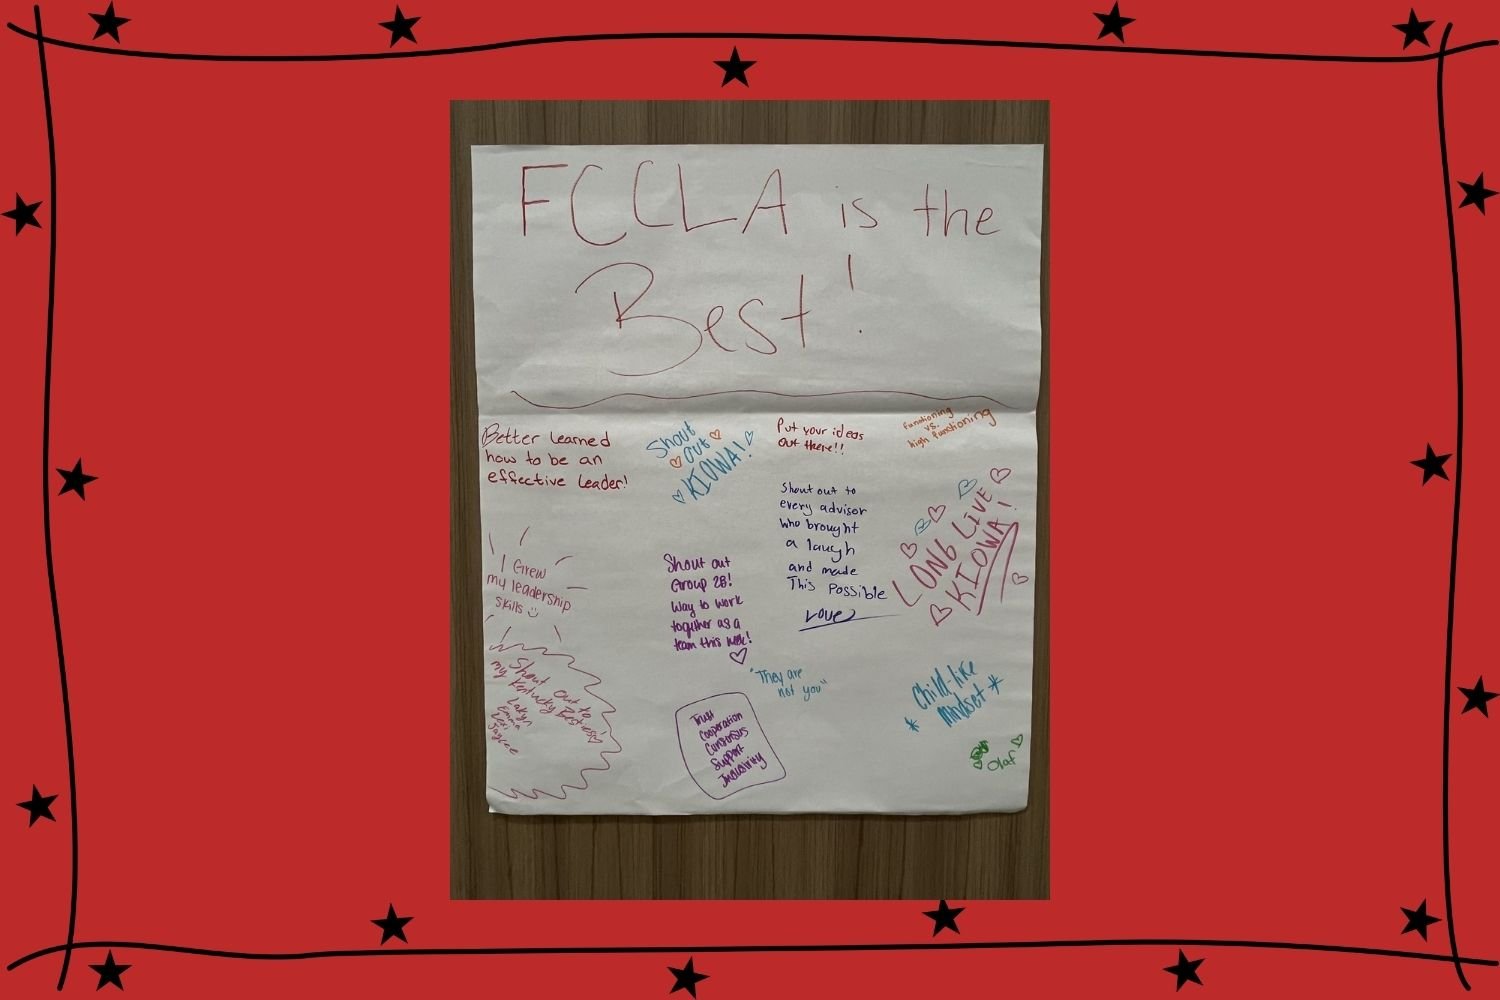 FCCLA is the
Best!
Better learned
how to be an
effective leader!
Shout
out
KIOWA!
Put your ideas
out there!!
functioning
vs.
high functioning
Shout out to
every advisor
who brought
a laugh
and made
This Possible
Love
LONG LIVE
KIOWA!
I Grew
my leadership
skills
Shout out
Group 28!
Way to work
together as a
team this week!
Shout out to
my Kentucky Besties!
Lakyn
Emma
Lexi
Jaycee
"They are
not you"
Trust
Cooperation
Consensus
Support
Inclusivity
Child-like
Mindset
Olaf